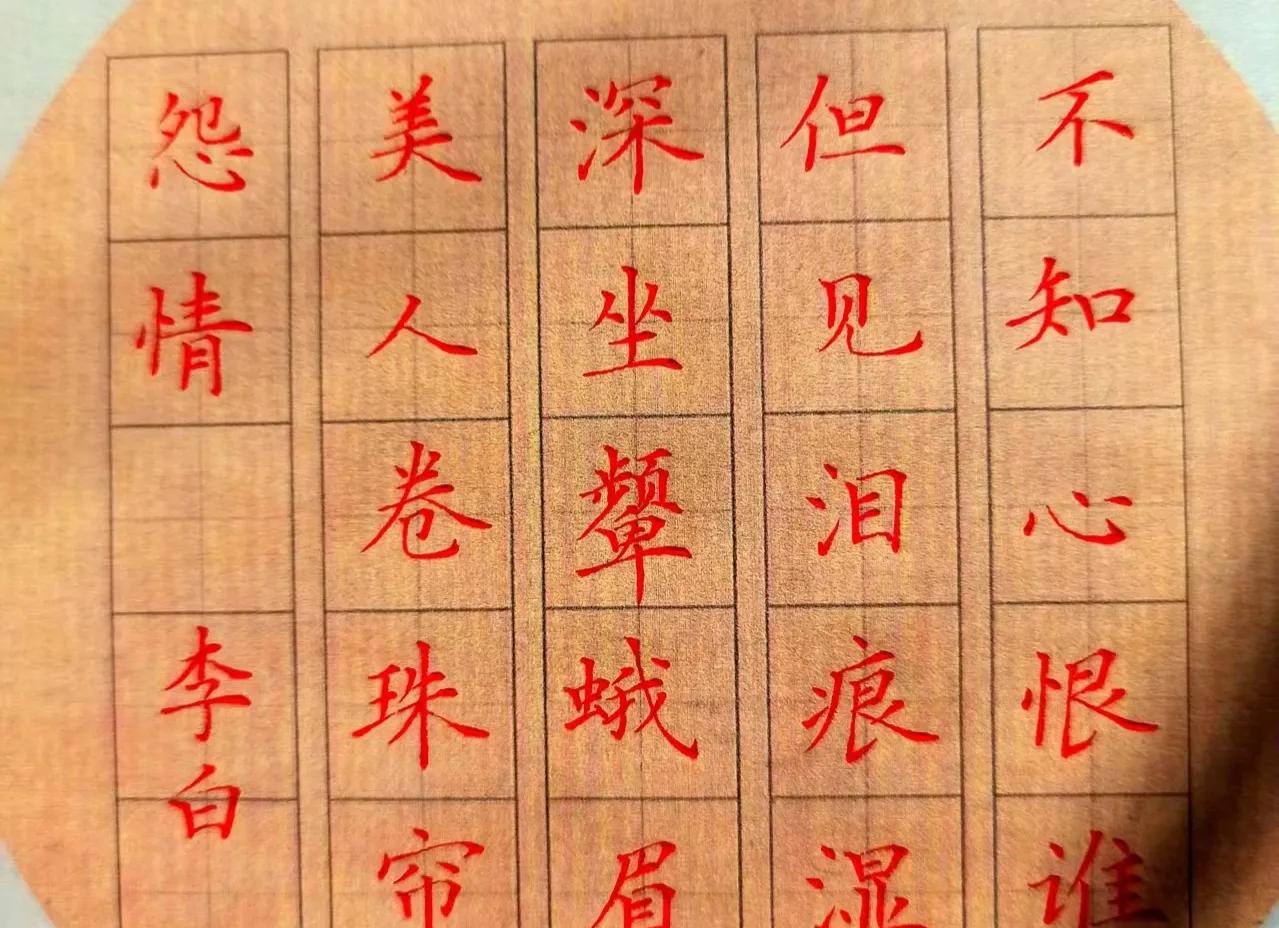 怨情
李白
美人卷珠帘
深坐颦蛾眉
但见泪痕湿
不知心恨谁